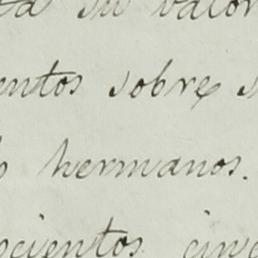 su valor
entos sobre s
hermanos.
cientos cinc